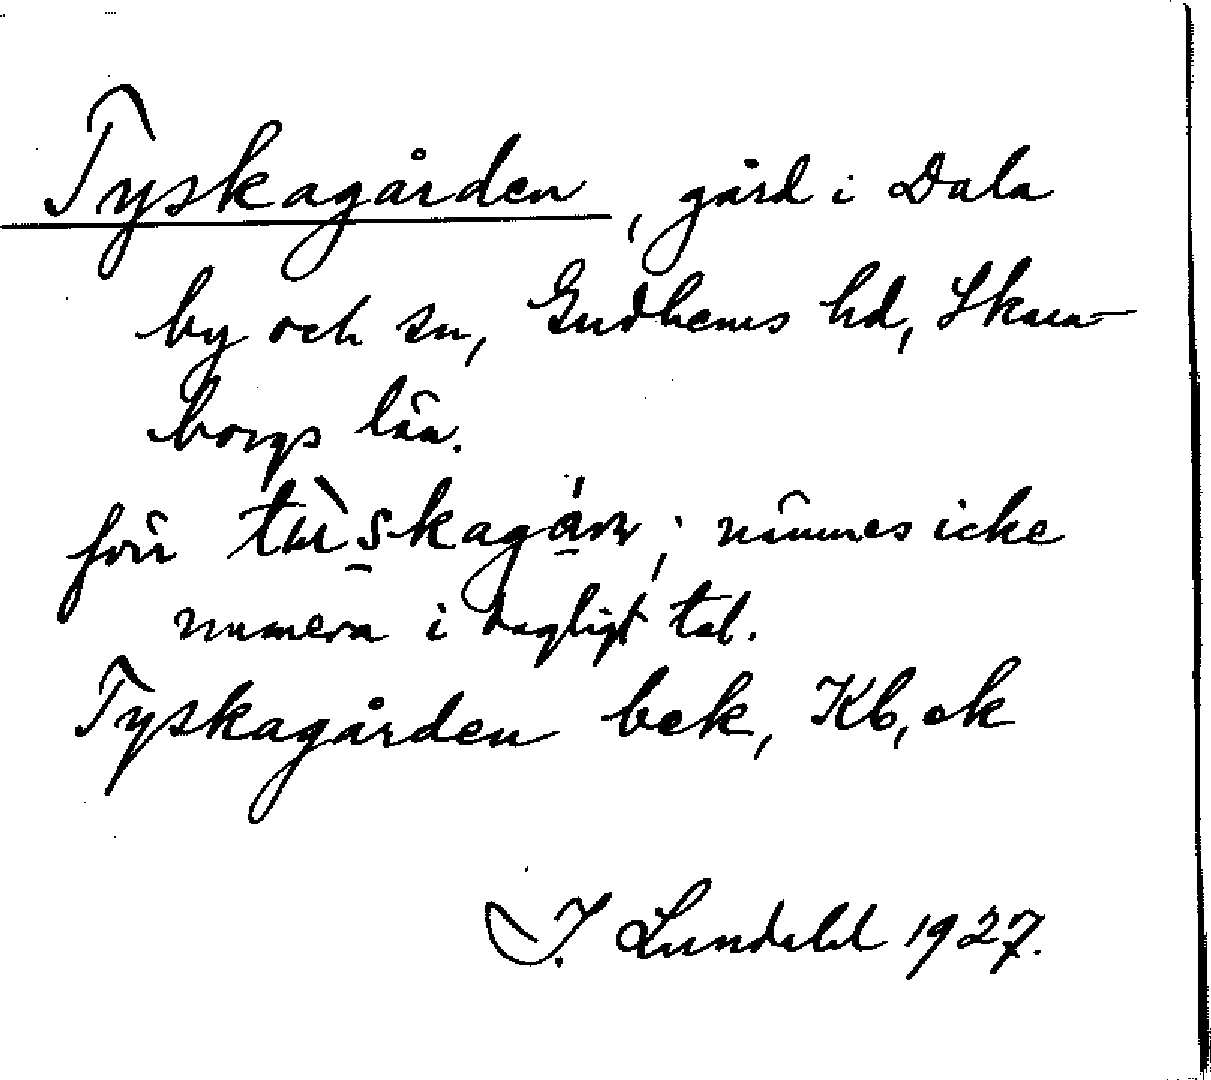 Tyskagården, gård i Dala
by och sn, Gudhems hd, Skara-
borgs län.
förr tùskagárn; nämnes icke
numera i dagligt tal.
Tyskagården bek, Kb, ek
I. Lundahl 1927.